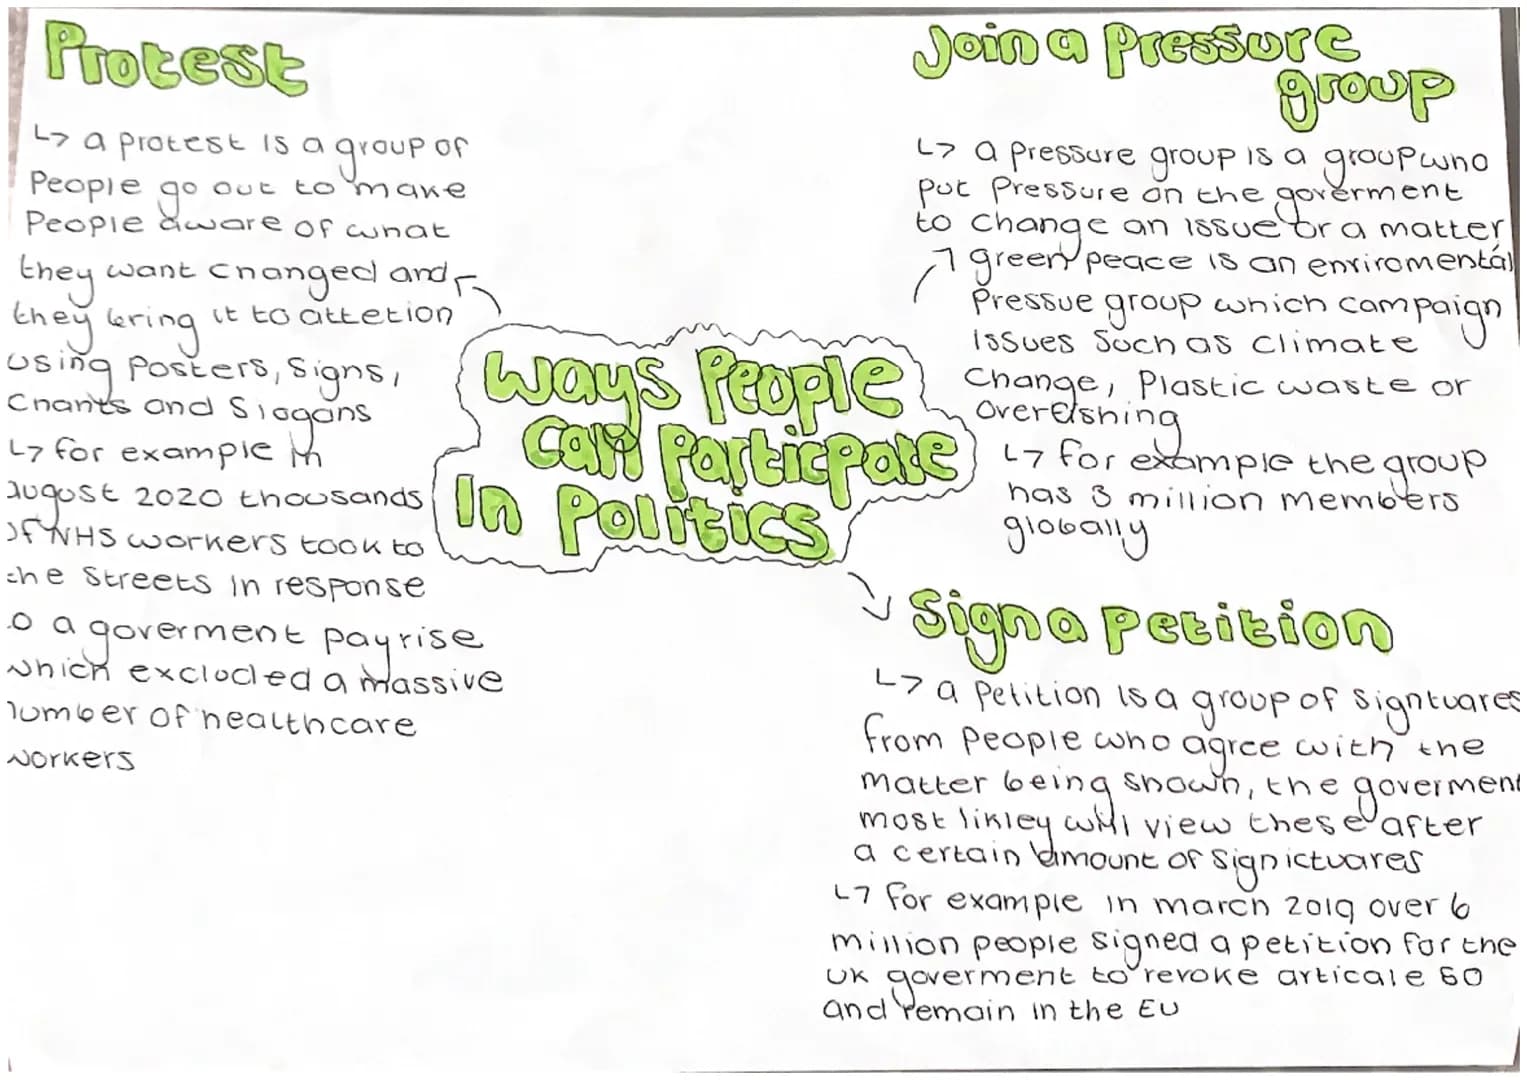 Protest
↳ a protest is a group of
People go out to make
People aware of what
they want changed and
they bring it to attetion
using Posters, Signs,
Chants and Slogans
↳ for example in
august 2020 thousands
of NHS workers took to
the Streets in response
to a goverment payrise
which excluded a massive
number of healthcare
workers
Ways People
Can Particpate
In Politics
Join a Pressure
group
↳ a pressure group is a group who
put Pressure on the goverment
to change an issue or a matter
green peace is an enviromental
Pressue group which campaign
issues Such as Climate
Change, Plastic waste or
overfishing
↳ for example the group
has 3 million members
globally
Sign a Petition
↳ a Petition is a group of Signtuares
from People who agree with the
matter being shown, the goverment
most likley will view these after
a certain amount of Signictuares
↳ for example in march 2019 over 6
million people signed a petition for the
UK goverment to revoke articale 50
and remain in the EU